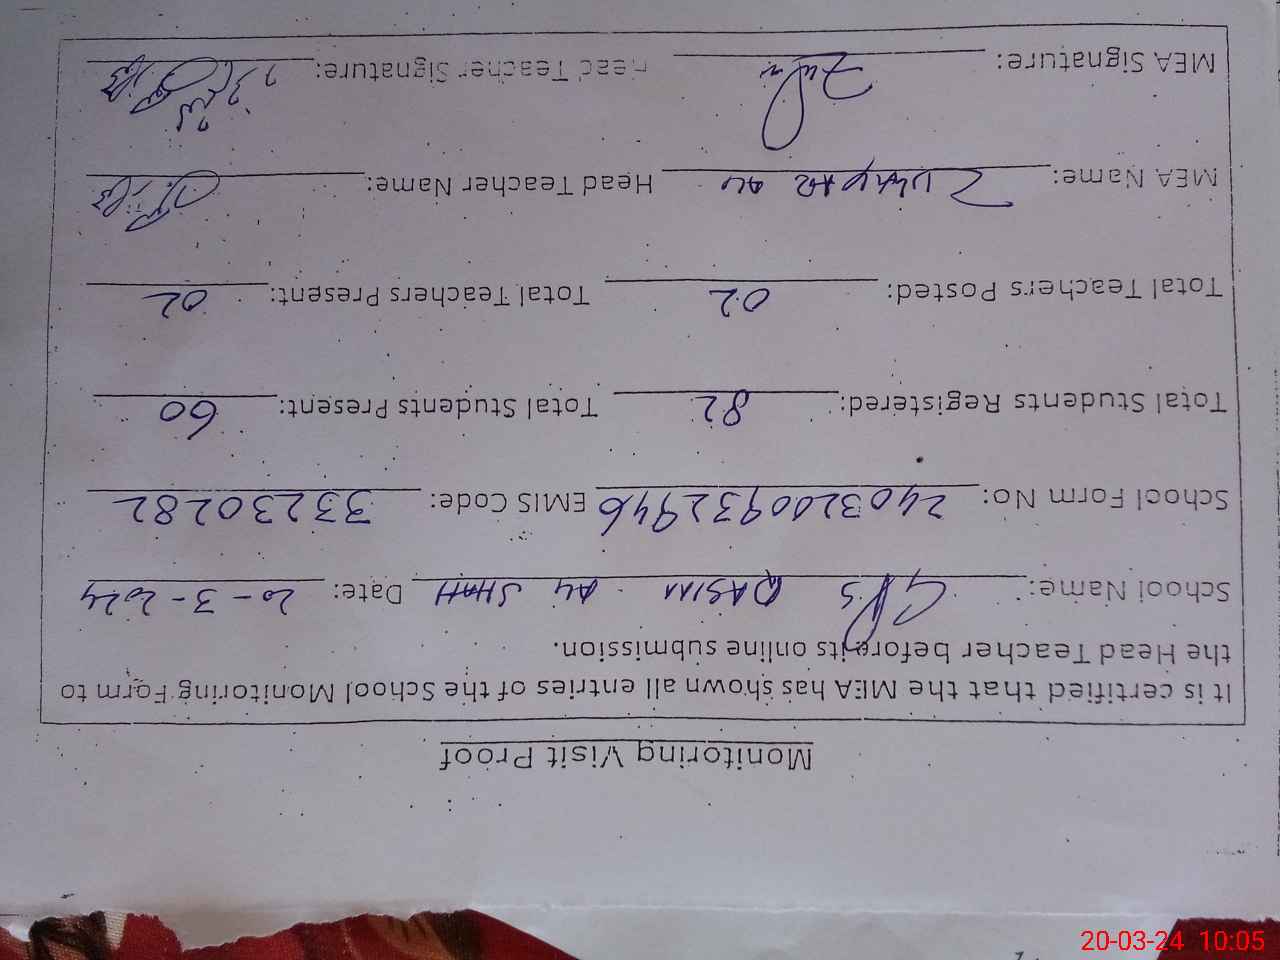 Monitoring Visit Proof
It is certified that the MEA has shown all entries of the School Monitoring Form to
the Head Teacher before its online submission.
School Name: GPS QASIM ALI SHAH Date: 20-3-2024
School Form No: 2403200932946 EMIS Code: 33230282
Total Students Registered: 82 Total Students Present: 60
Total Teachers Posted: 02 Total Teachers Present: 02
MEA Name: ZULFIQAR ALI Head Teacher Name:
MEA Signature: Head Teacher Signature:
20-03-24 10:05